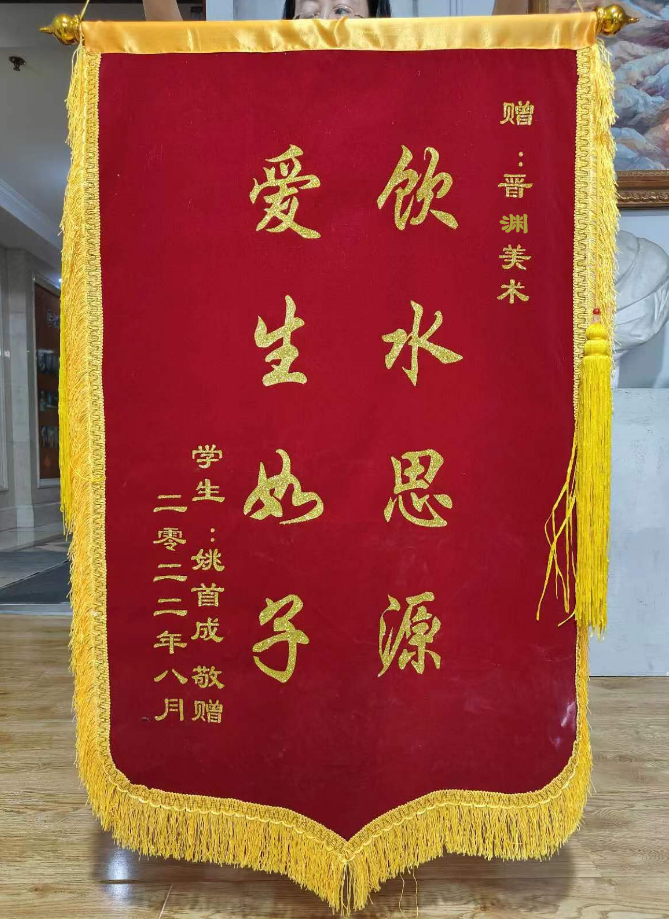 赠：晋渊美术
饮水思源
爱生如子
学生：姚首成 敬赠
二零二二年八月